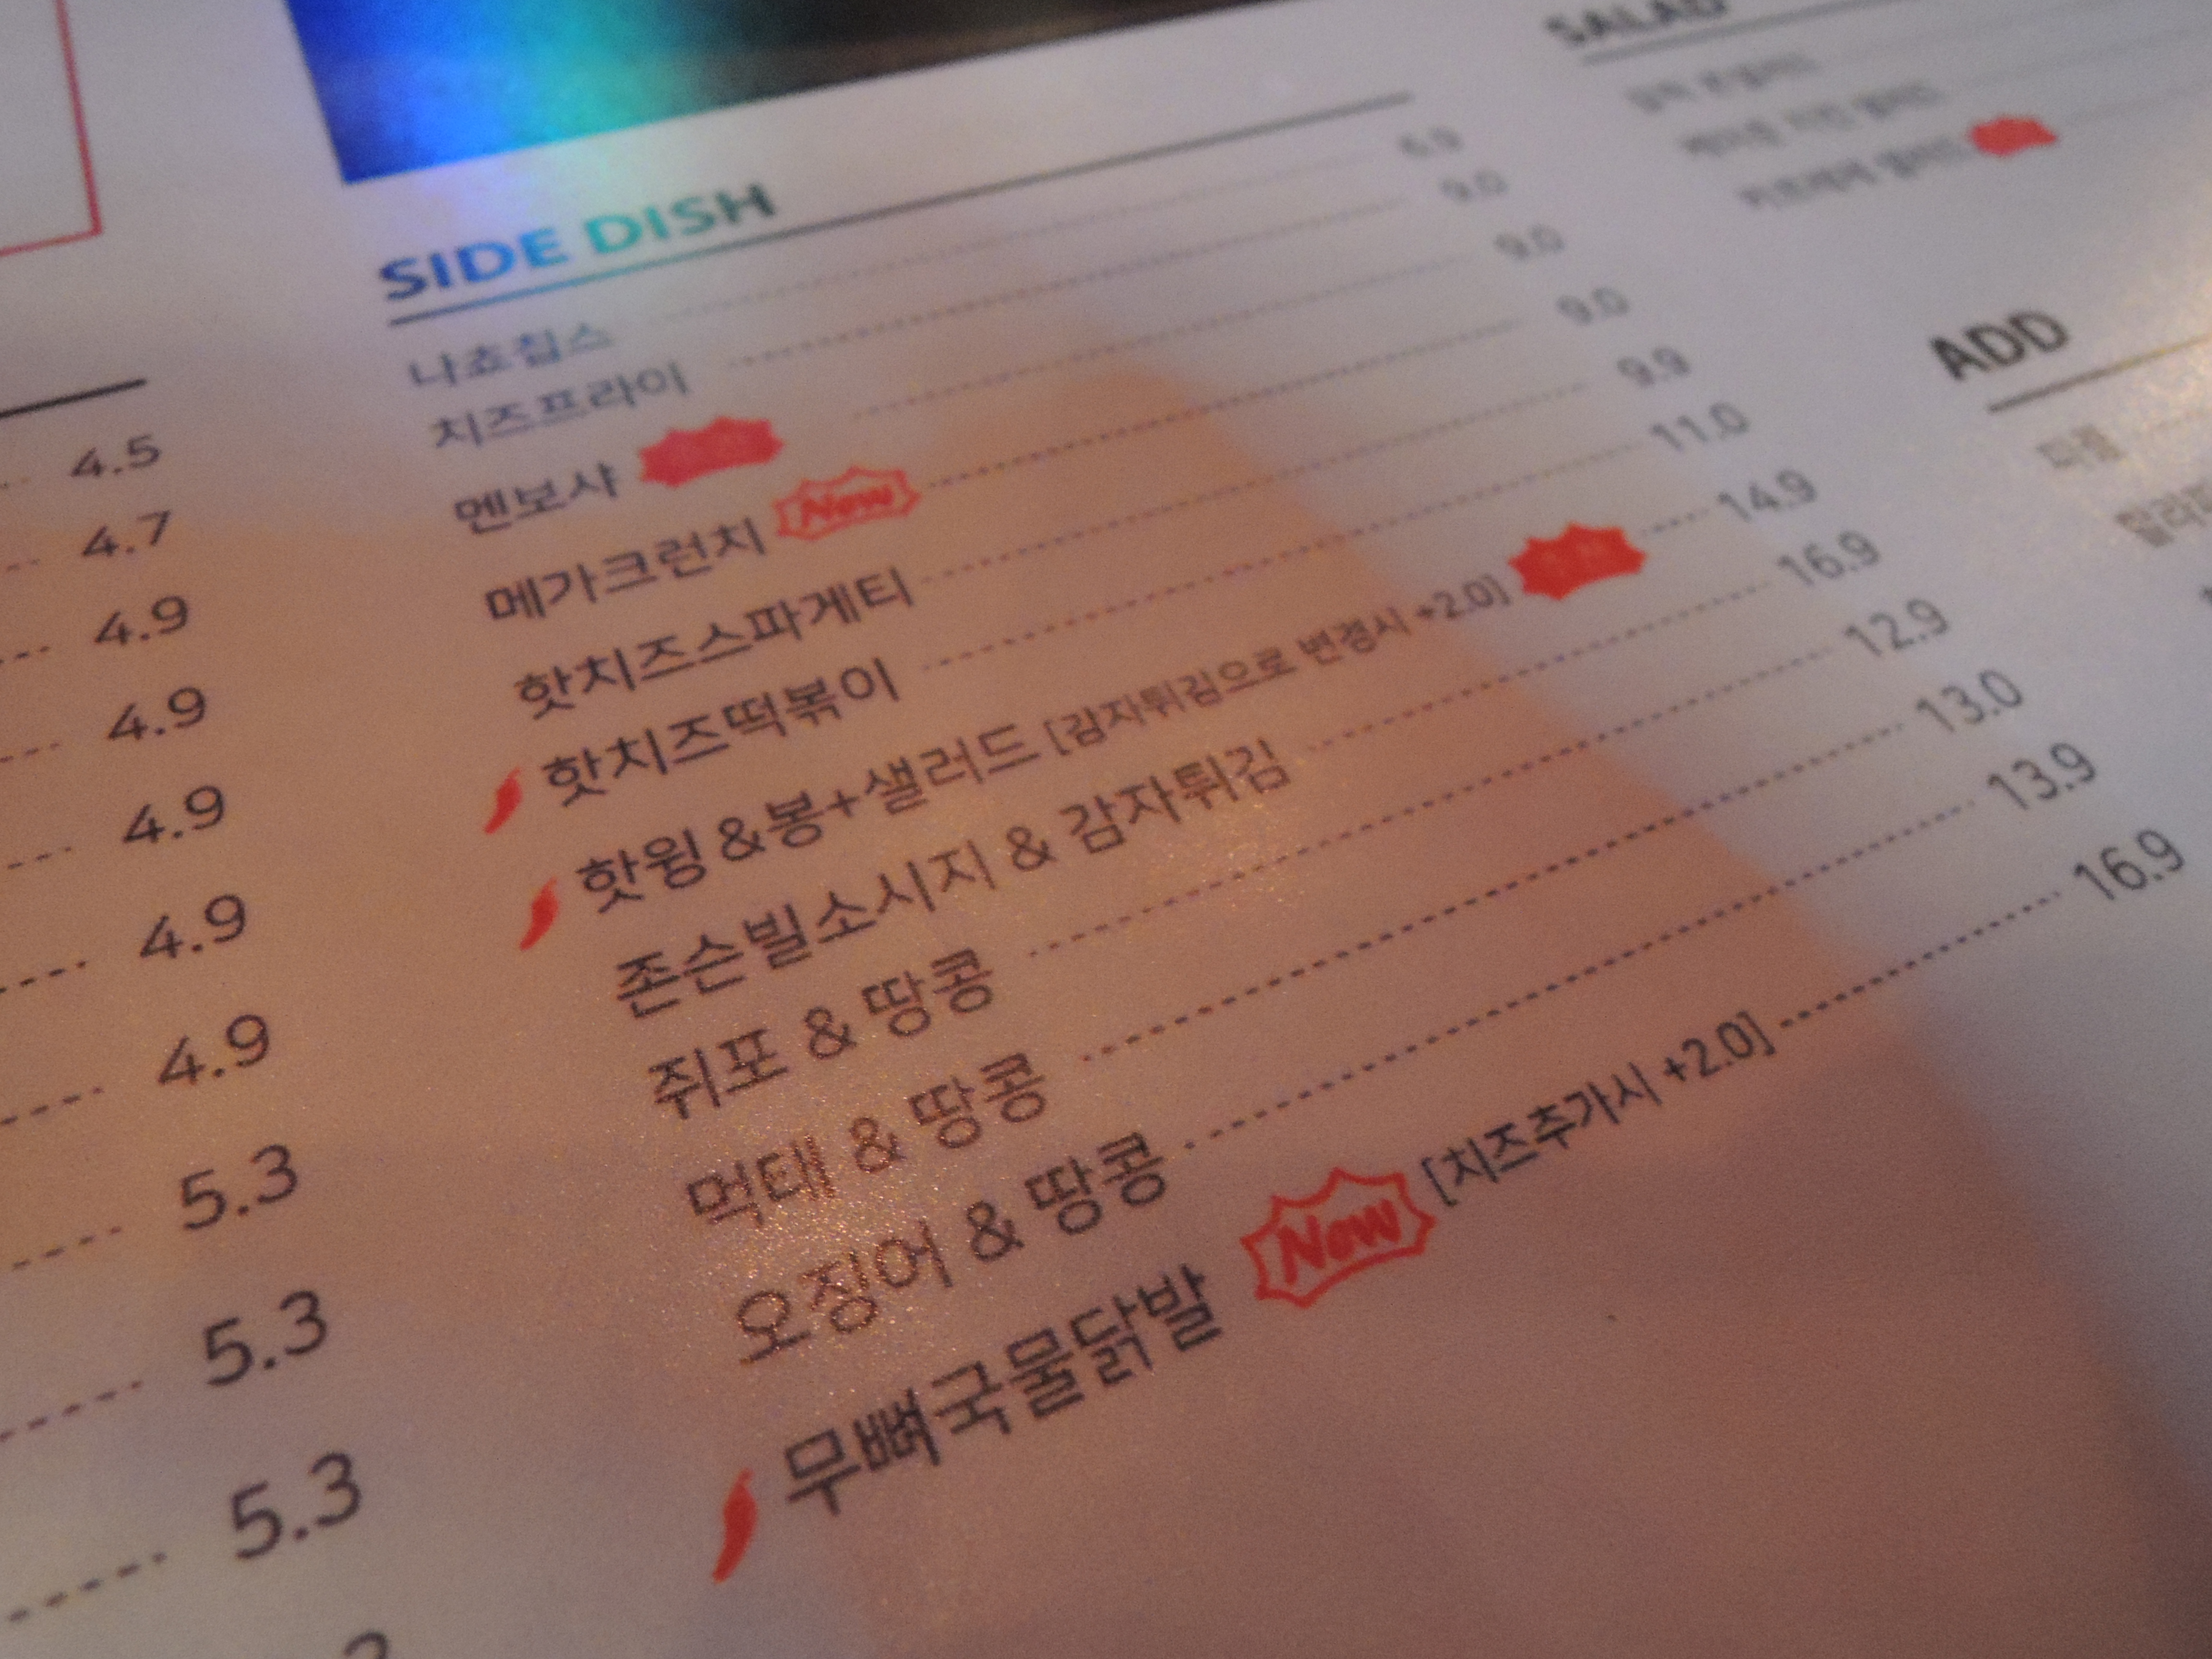 4.5
4.7
4.9
4.9
4.9
4.9
4.9
5.3
5.3
5.3
SIDE DISH
나쵸칩스
치즈프라이 9.0
멘보샤 9.0
메가크런치 New 9.0
핫치즈스파게티 9.9
핫치즈떡볶이 11.0
핫윙 &봉+샐러드 [감자튀김으로 변경시 +2.0] 14.9
존슨빌소시지 & 감자튀김 16.9
쥐포 & 땅콩 12.9
먹태 & 땅콩 13.0
오징어 & 땅콩 13.9
무뼈국물닭발 New [치즈추가시 +2.0] 16.9
SALAD
ADD